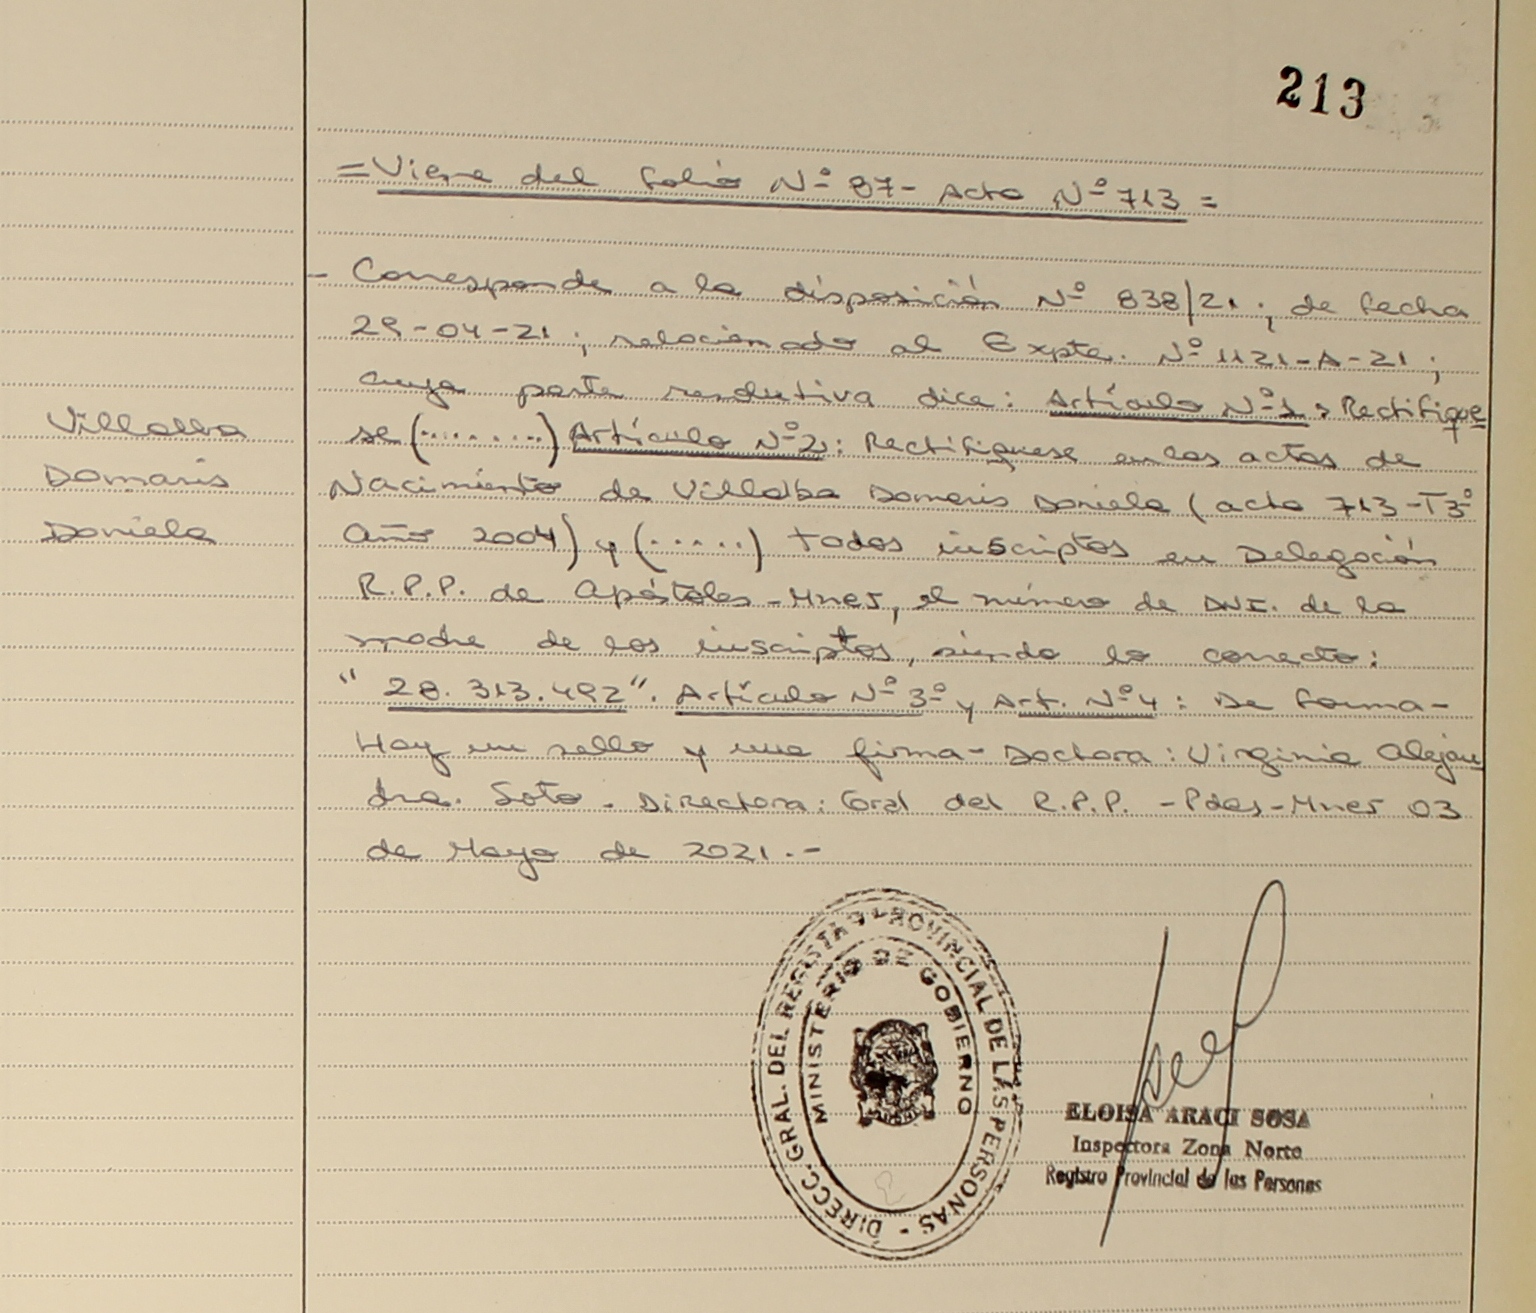 213
=Viene del folio Nº 87- Acta Nº 713 =
- Corresponde a la disposición Nº 838/21; de fecha
29-04-21; relacionado al Expte. Nº 1121-A-21;
cuya parte resolutiva dice: Artículo Nº1: Rectifíque
se (.........) Artículo Nº2: Rectifíquese en las actas de
Nacimiento de Villalba Damaris Daniela (acta 713-Tº3
Año 2004) y (.....) todos inscriptos en Delegación
R.P.P. de Apóstoles-Mnes, el número de DNI. de la
madre de los inscriptos, siendo lo correcto:
"28.313.492". Artículo Nº 3º y Art. Nº 4: De forma-
Hay un sello y una firma- Doctora: Virginia Alejan
dra. Soto. Directora: Gral del R.P.P. -Pdas-Mnes 03
de Mayo de 2021.-
Villalba
Damaris
Daniela
DIRECC. GRAL. DEL REGISTRO PROVINCIAL DE LAS PERSONAS -
MINISTERIO DE GOBIERNO
ELOISA ARACI SOSA
Inspectora Zona Norte
Registro Provincial de las Personas